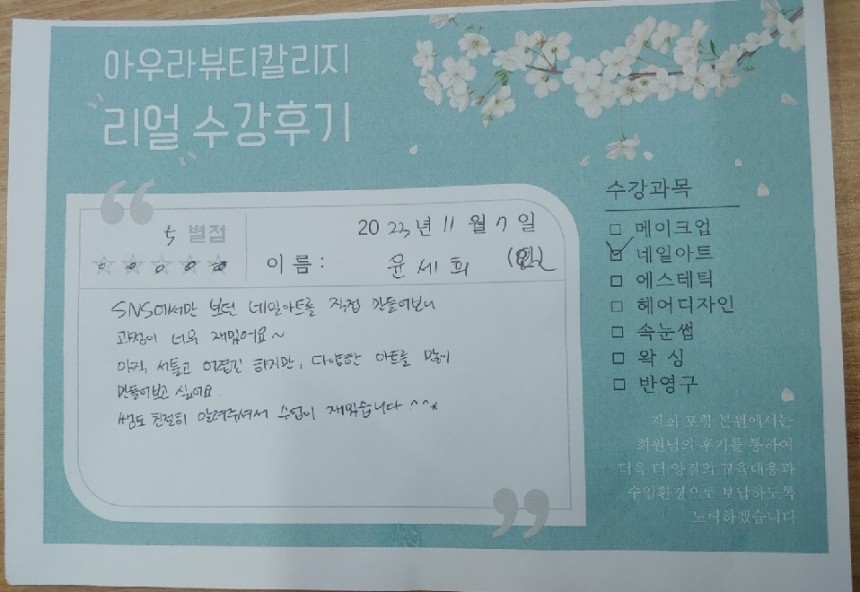 아우라뷰티칼리지
리얼 수강후기
5 별점
2023년 11월 7일
이름: 윤세희
SNS에서만 보던 네일아트를 직접 만들어보니
과정이 너무 재밌어요~
아직 서툴고 어렵긴 하지만, 다양한 아트를 많이
만들어보고 싶어요
쌤도 친절히 알려주셔서 수업이 재밌습니다^^*
수강과목
□ 메이크업
☑ 네일아트
□ 에스테틱
□ 헤어디자인
□ 속눈썹
□ 왁싱
□ 반영구
저희 포항 본원에서는
회원님의 후기를 통하여
더욱 더 양질의 교육내용과
수업환경으로 보답하도록
노력하겠습니다